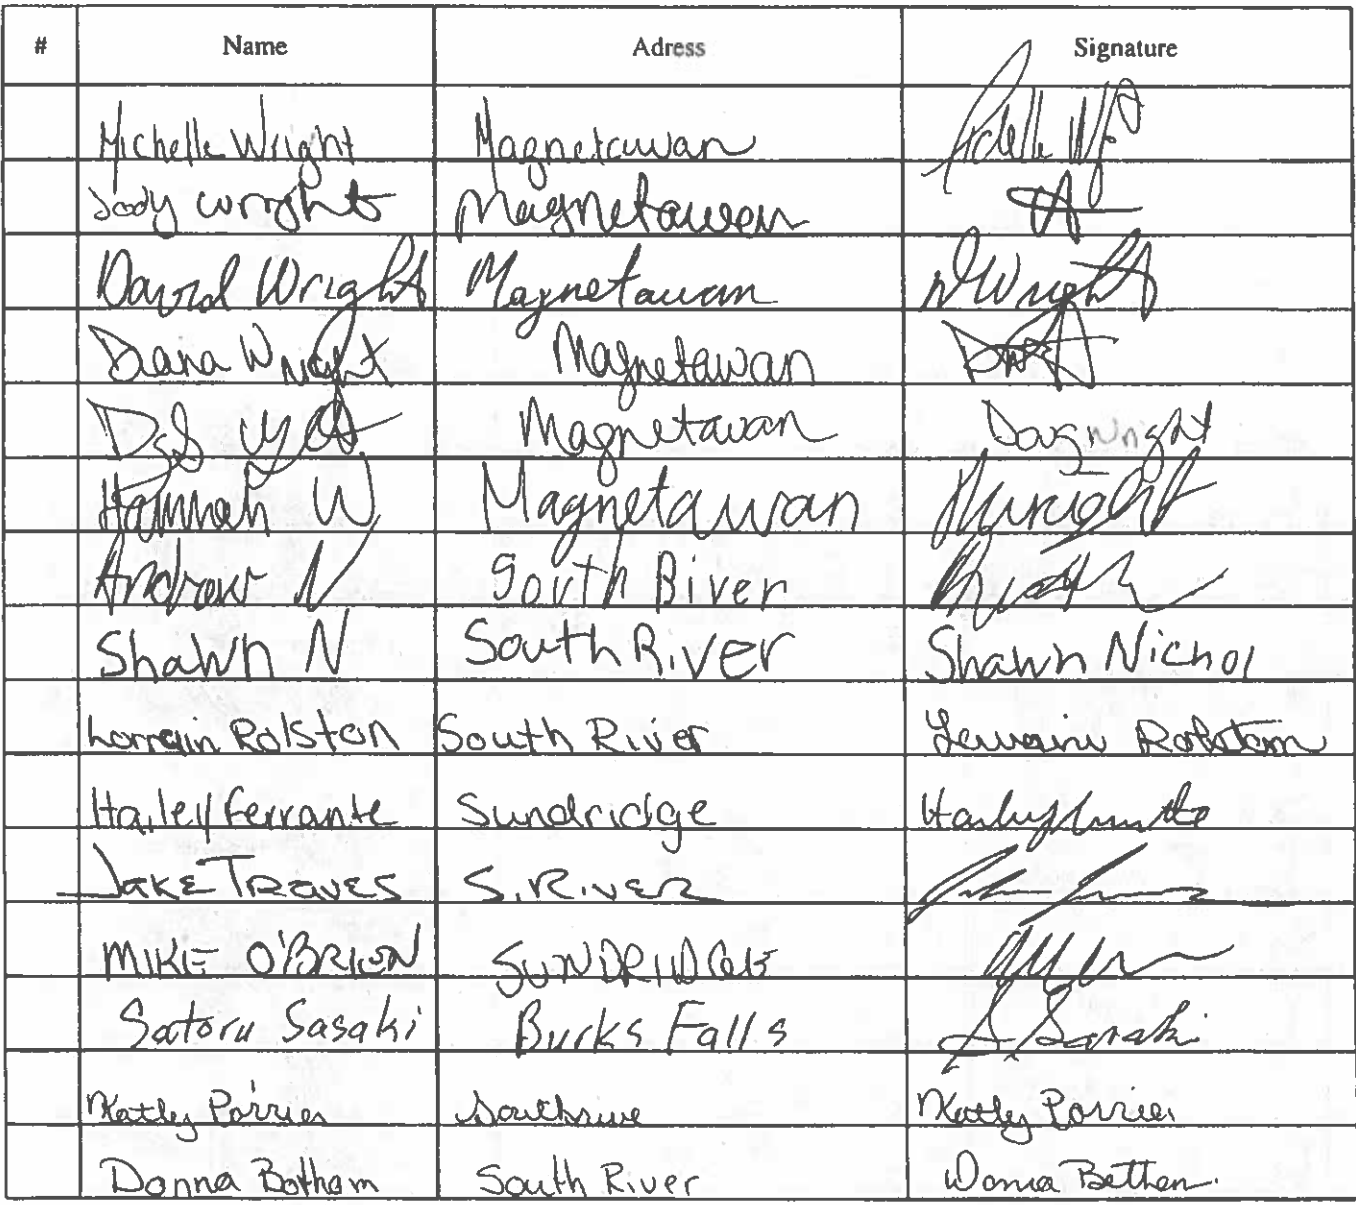 # Name Adress Signature
Michelle Wright Magnetawan
Jody Wright Magnetawan
David Wright Magnetawan DWright
Diana Wright Magnetawan
Magnetawan Doug Wright
Hannah W Magnetawan
Andrew N South River
Shawn N South River Shawn Nichol
Lorrain Rolston South River Lorraine Rolston
Hailey Ferrante Sundridge
Jake Treaves S. River
MIKE O'BRIEN SUNDRIDGE
Satoru Sasaki Burks Falls S Sasaki
Kathy Poirier Kathy Poirier
Donna Botham South River Donna Botham